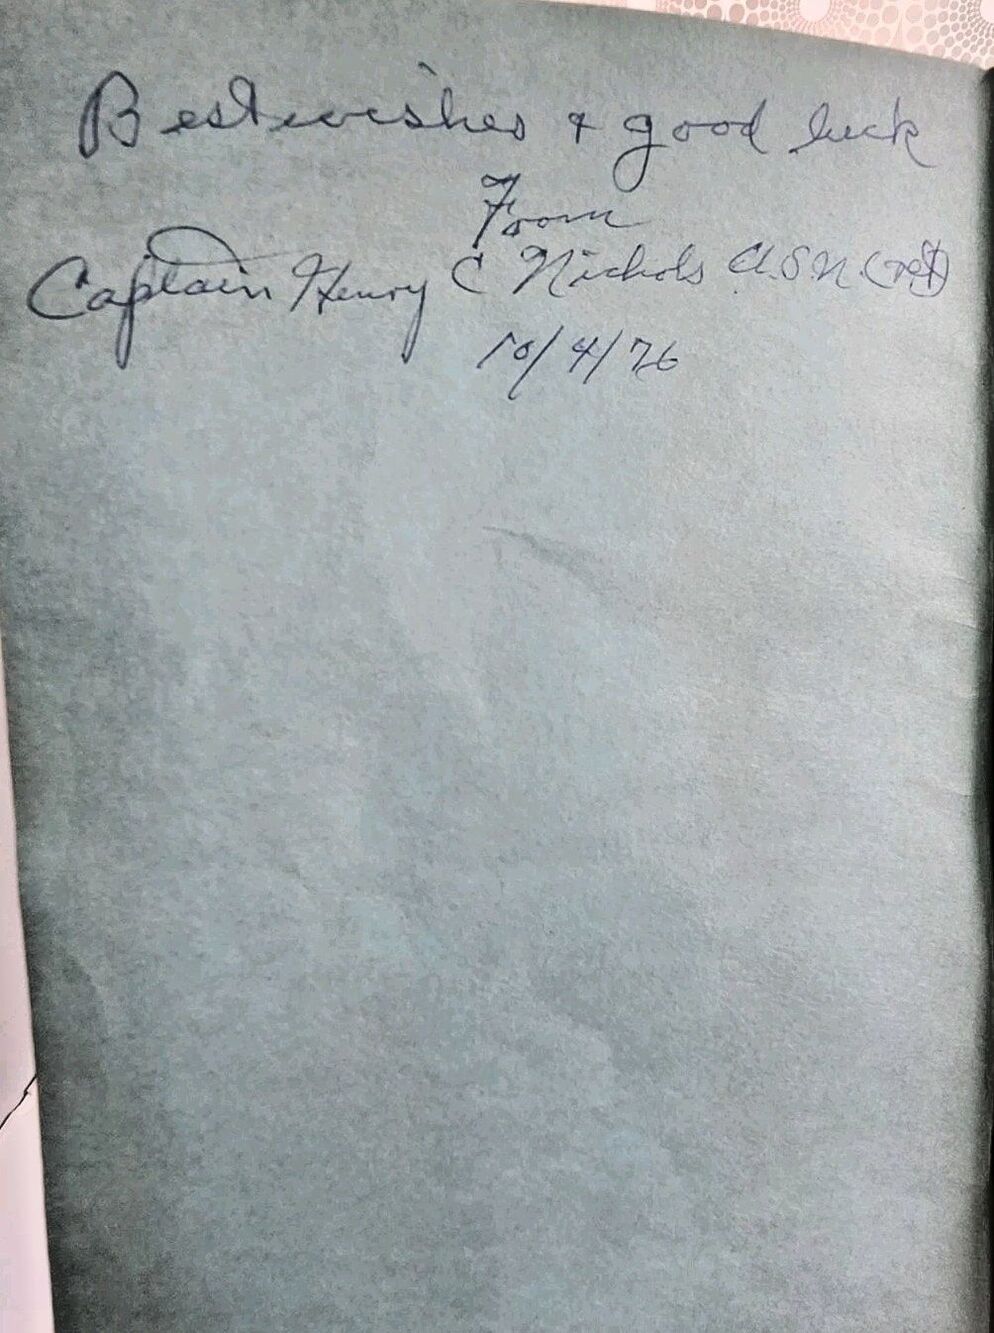 Best wishes & good luck
From
Captain Henry C Nichols USN (ret)
10/4/76